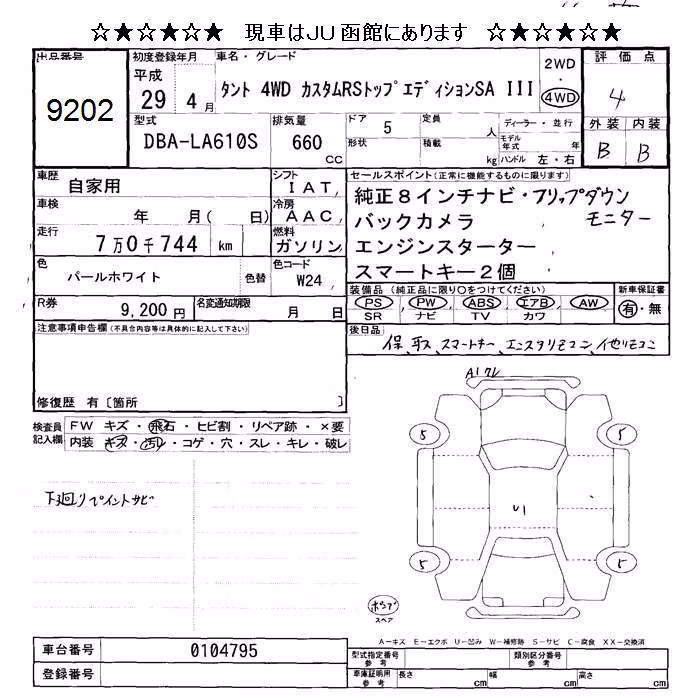 ☆★☆★☆★ 現車はJU函館にあります ☆★☆★☆★
出品番号
9202
初度登録年月
平成
29年 4月
車名・グレード
タント 4WD カスタムRSトップエディションSA III
2WD
・
4WD
評価点
4
型式
DBA-LA610S
排気量
660
cc
ドア
5
定員
人
ディーラー・並行
形状
積載
kg
モデル年式 年
ハンドル 左・右
外装 内装
B B
車歴
自家用
シフト
I A T
車検
年 月( 日)
冷房
A A C
走行
7万0千744 km
燃料
ガソリン
色
パールホワイト
色替
色コード
W24
R券
9,200円
名変通知期限
月 日
セールスポイント(正常に機能するものに限ります)
純正8インチナビ・フリップダウン
モニター
バックカメラ
エンジンスターター
スマートキー2個
装備品 (純正品に限り○をつけてください)
PS PW ABS エアB AW
SR ナビ TV カワ
新車保証書
有・無
後日品
保、取ス、スマートキー、エンスタリモコン、他リモコン
注意事項申告欄(不具合内容等は具体的に記入して下さい)
修復歴 有〔箇所 〕
検査員記入欄
FW キズ・飛石・ヒビ割・リペア跡・×要
内装 キズ・汚レ・コゲ・穴・スレ・キレ・破レ
下廻りペイントサビ
A1クレ
5
5
U1
5
5
スペア
A-キズ E-エクボ U-凹み W-補修跡 S-サビ C-腐食 XX-交換済
車台番号
0104795
登録番号
型式指定番号
参考
類別区分番号
参考
車庫証明用
参考
長さ cm
幅 cm
高さ cm